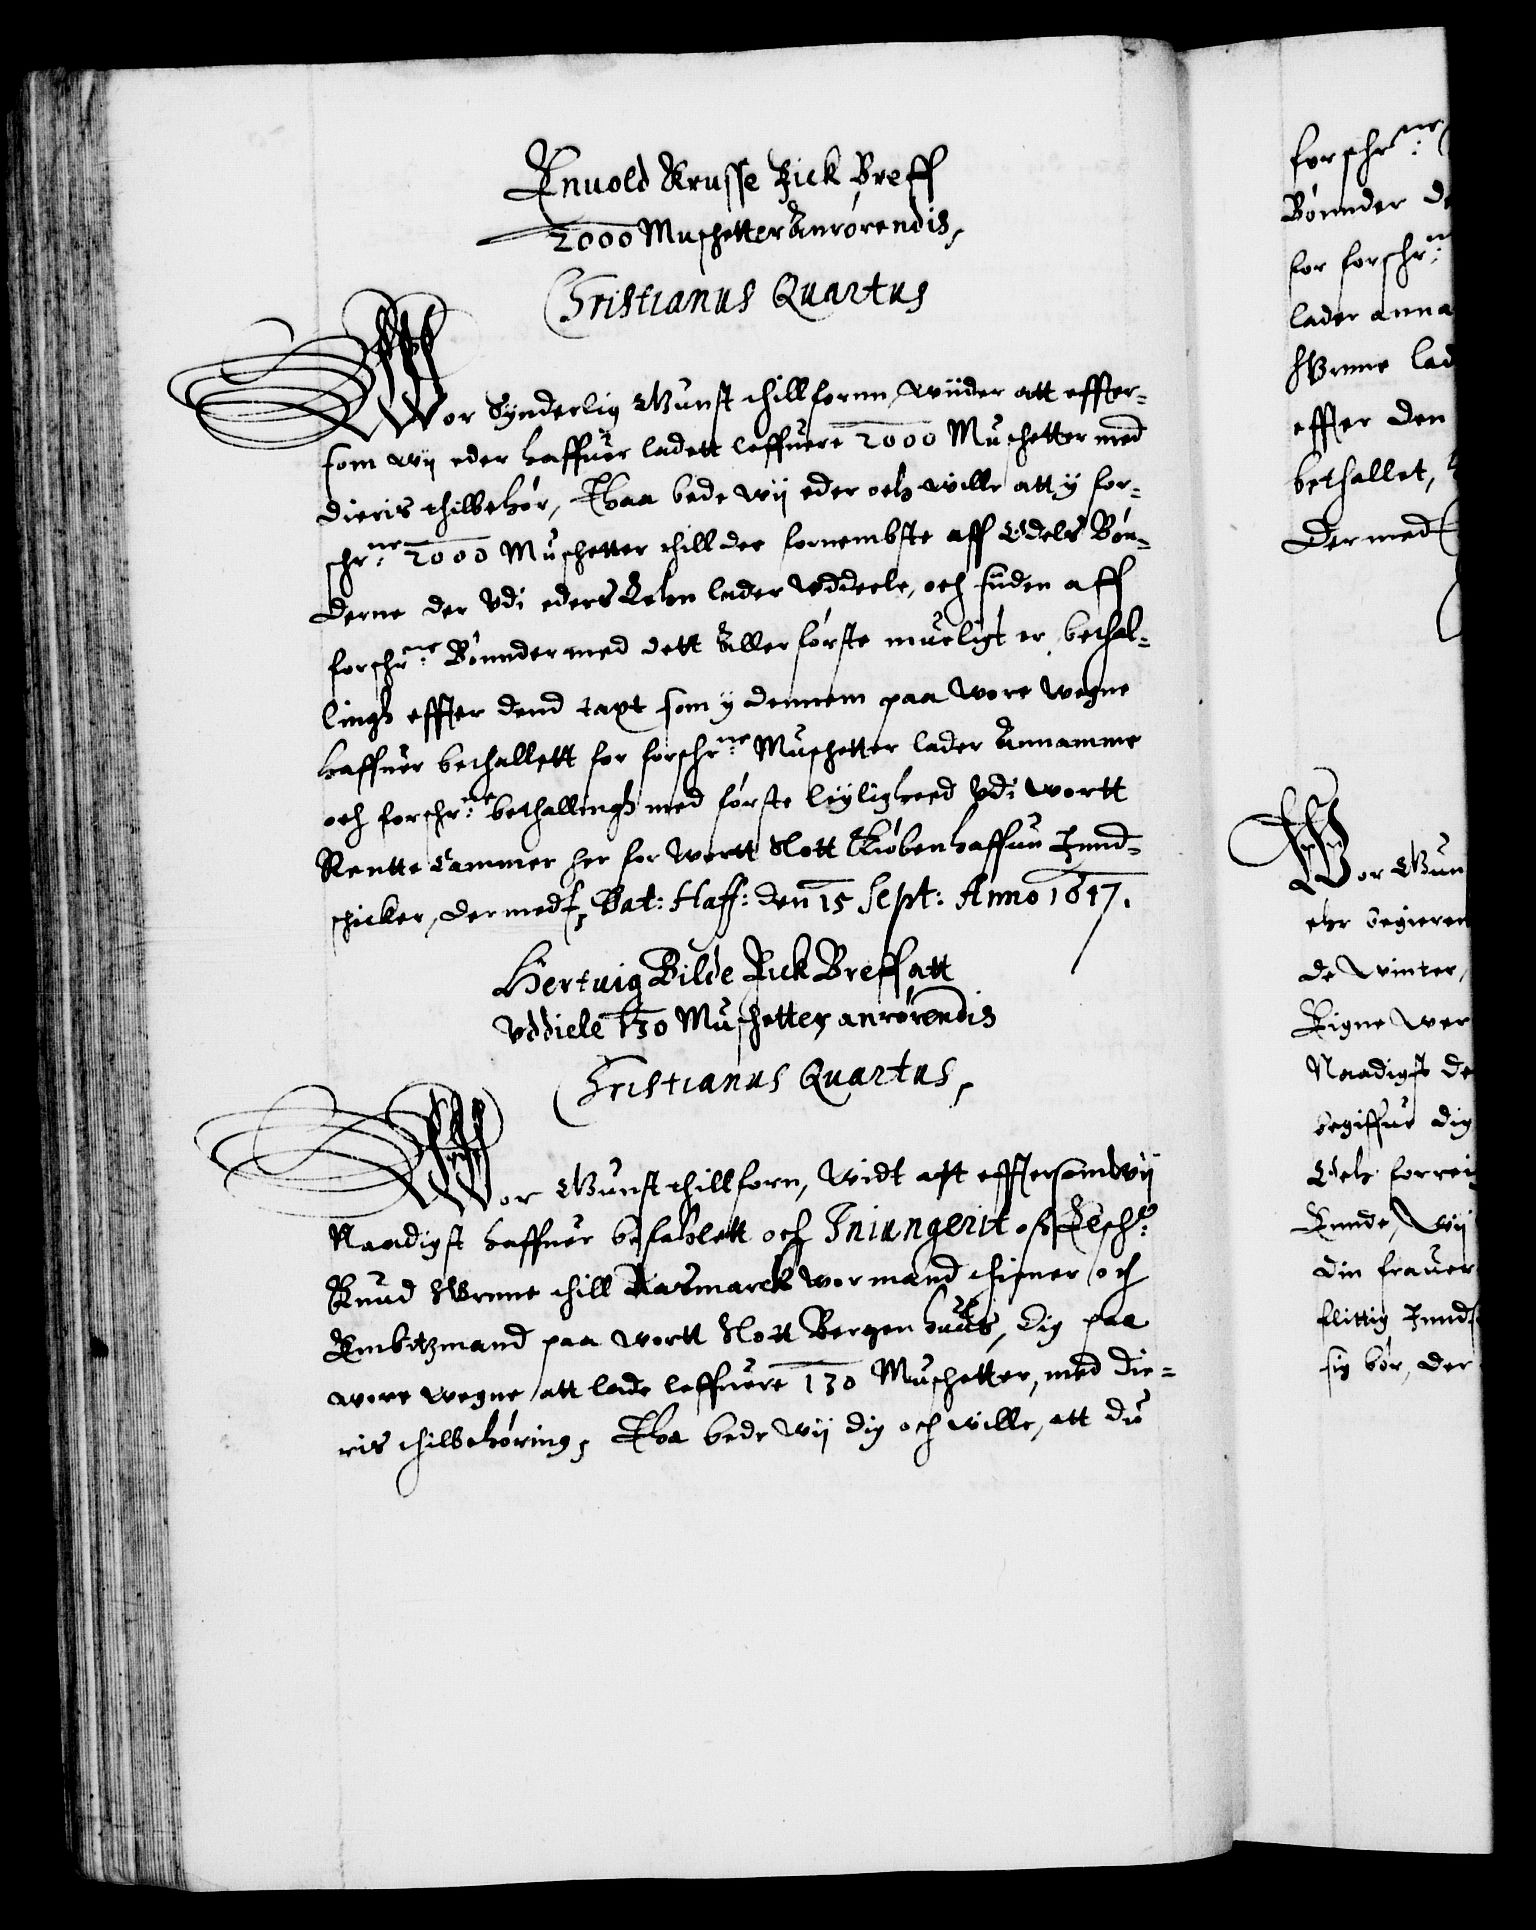 Enuold Krusse Fick Breff
2000 Muschetter Anrörendis,
Christianus Quartus
Wor Synderlig Gunst thillforn, Wiider att effter-
som wij eder haffuer ladett leffuere 2000 Muschetter med
dieris thilbehör, Thaa bede wij eder och wille att y for-
schr:ne 2000 Muschetter thill dee fornembste aff Odels Bön-
derne der Vdi eders Lehn lader Vddeele, och siiden aff
forschr:ne Bönnder med dett Aller förste mueligt er, bethal-
lingh effter dend taxt som y dennem paa Wore Wegne
haffuer bethallett for forschr:ne Muschetter lader Annamme
och forschr:ne bethallingh med förste leyligheed Vdi wortt
Rentte Cammer her for Wortt Slott Kiöbenhaffun Jnnd-
schicker, der med etc, Dat: Haff: den 15 Sept: Anno 1617.
Hertuig Bilde Fick Breff att
Vddiele 130 Muschetter anrörendis
Christianus Quartus,
Wor Gunst thillforn, Widt att efftersom Wij
Naadigst haffuer befahlett och Jniungerit oss Elsch:e
Knud Grune thill Aasmarck wor mand thiener och
Embitzmand paa wortt Slott Bergenhuus, dig paa
wore wegne att lade leffuere 130 Muschetter, med die-
ris thilbehöring, Tha bede Wij dig och wille, att du
forschr:ne
Bönnder de
for forschr:ne
lader anna
effter den
bethallet,
Der med
Wor Gun
ehr begieren
de Winter,
Rigne wer
Naadigst de
begiffue dig
Kunde, Wij
din
flittig Jnnd
sig bör, der